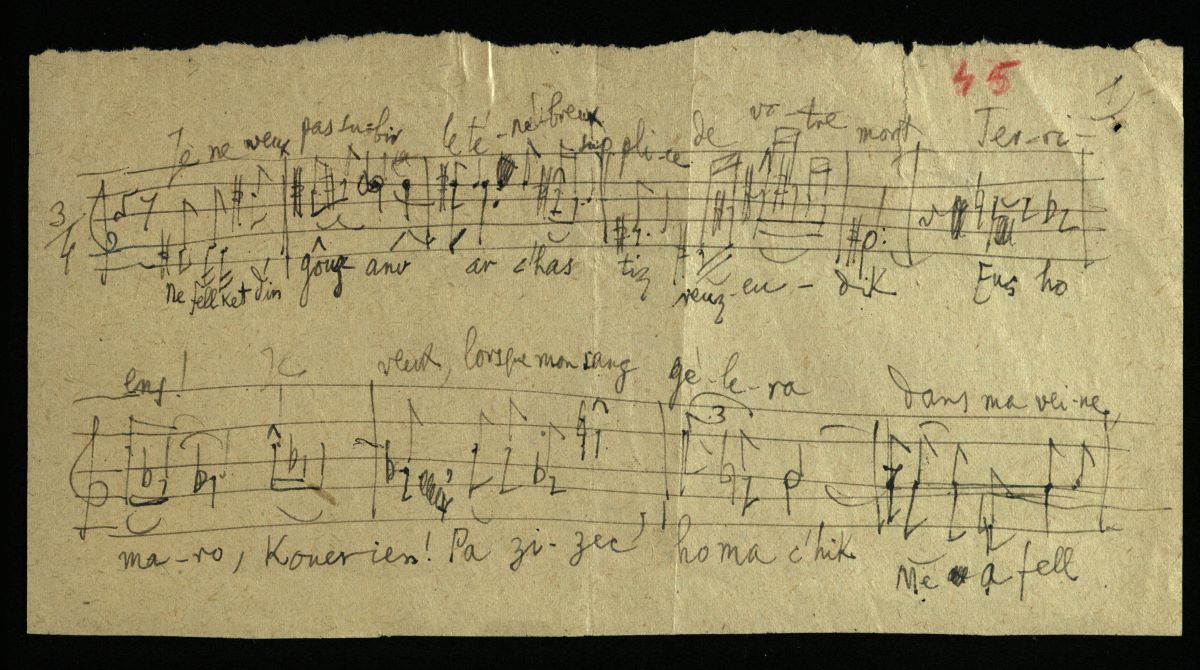 45
1)
Je ne veux pas su-bir le té-né-breux sup-pli-ce de vo-tre mort Ter-ri-
3/4
Ne fell ket din gouz anv ar c'has tiz reuz-eu-dik Eus ho
ens! Je veux, lorsque mon sang gè-le-ra dans ma vei-ne,
3
ma-ro, Kouerien! Pa zi-zec' ho ma c'hik Me a fell